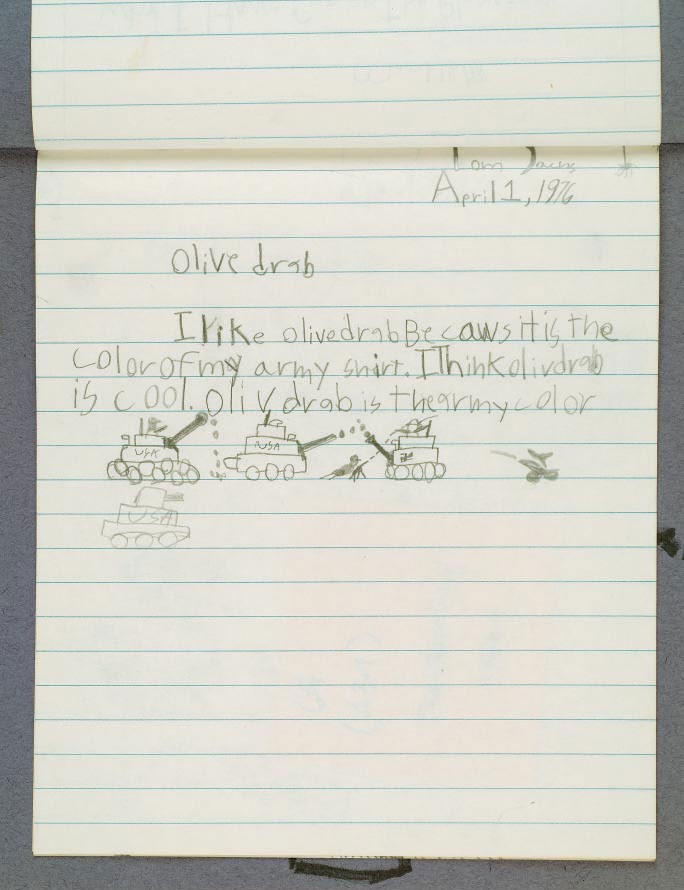 April 1, 1976
Olive drab
I like olivedrab Be caws it is the
color of my army shirt. I Think olivdrab
is cool. Oliv drab is the army color
USA
USA
USA